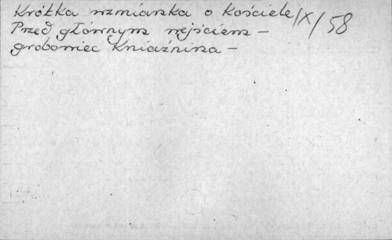 Krótka wzmianka o kościele /X/58
Przed głównym wejściem —
grobowiec Kniaźnina —